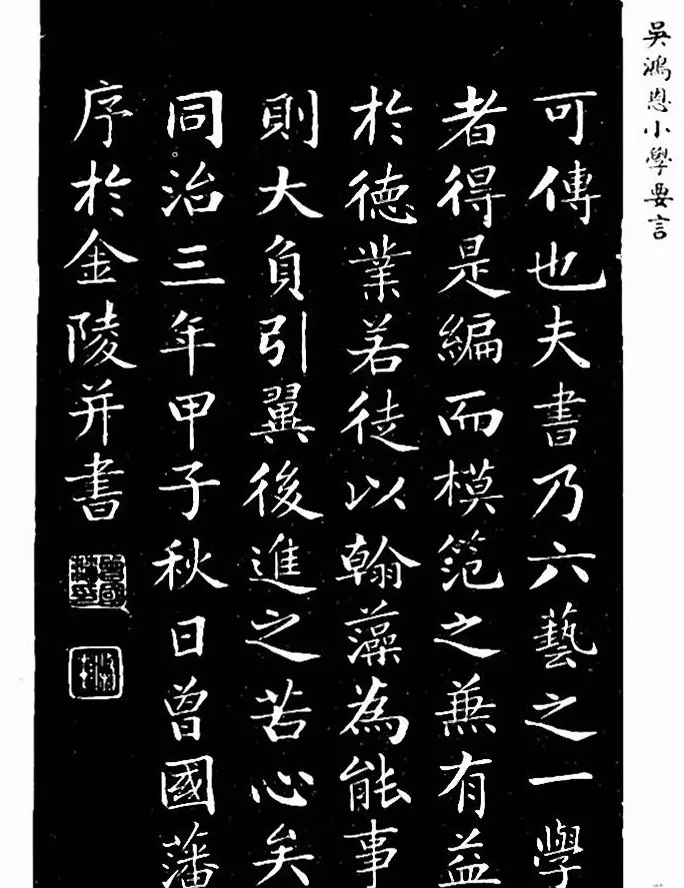 吳鴻恩小學要言
可傳也夫書乃六藝之一學
者得是編而模笵之兼有益
於德業若徒以翰藻為能事
則大負引翼後進之苦心矣
同治三年甲子秋日曾國藩
序於金陵并書
曾國藩印